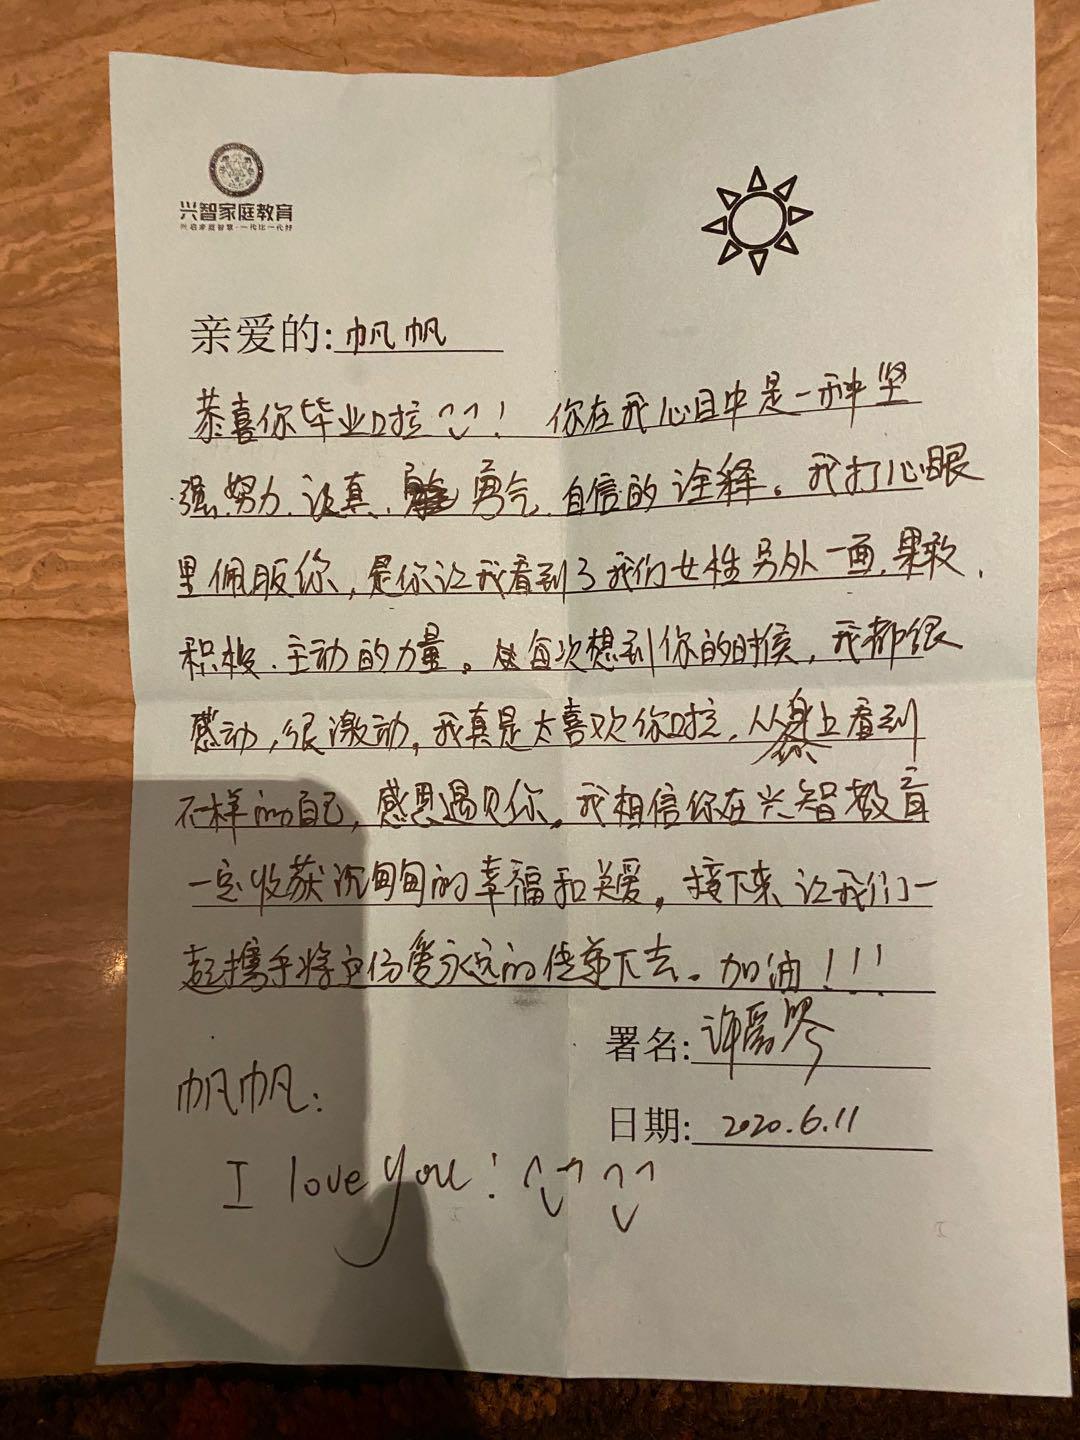 兴智家庭教育
兴启家庭智慧·一代比一代好
亲爱的:帆帆
恭喜你毕业啦^^!你在我心目中是一种坚
强、努力、认真、勇气、自信的诠释。我打心眼
里佩服你,是你让我看到了我们女性另外一面,果敢、
积极、主动的力量。每次想到你的时候,我都很
感动,很激动,我真是太喜欢你啦,从你身上看到
不一样的自己,感恩遇见你。我相信你在兴智教育
一定收获沉甸甸的幸福和关爱。接下来让我们一
起携手将这份爱永远的传递下去。加油!!!
署名:许
日期:2020.6.11
帆帆:
I love you!